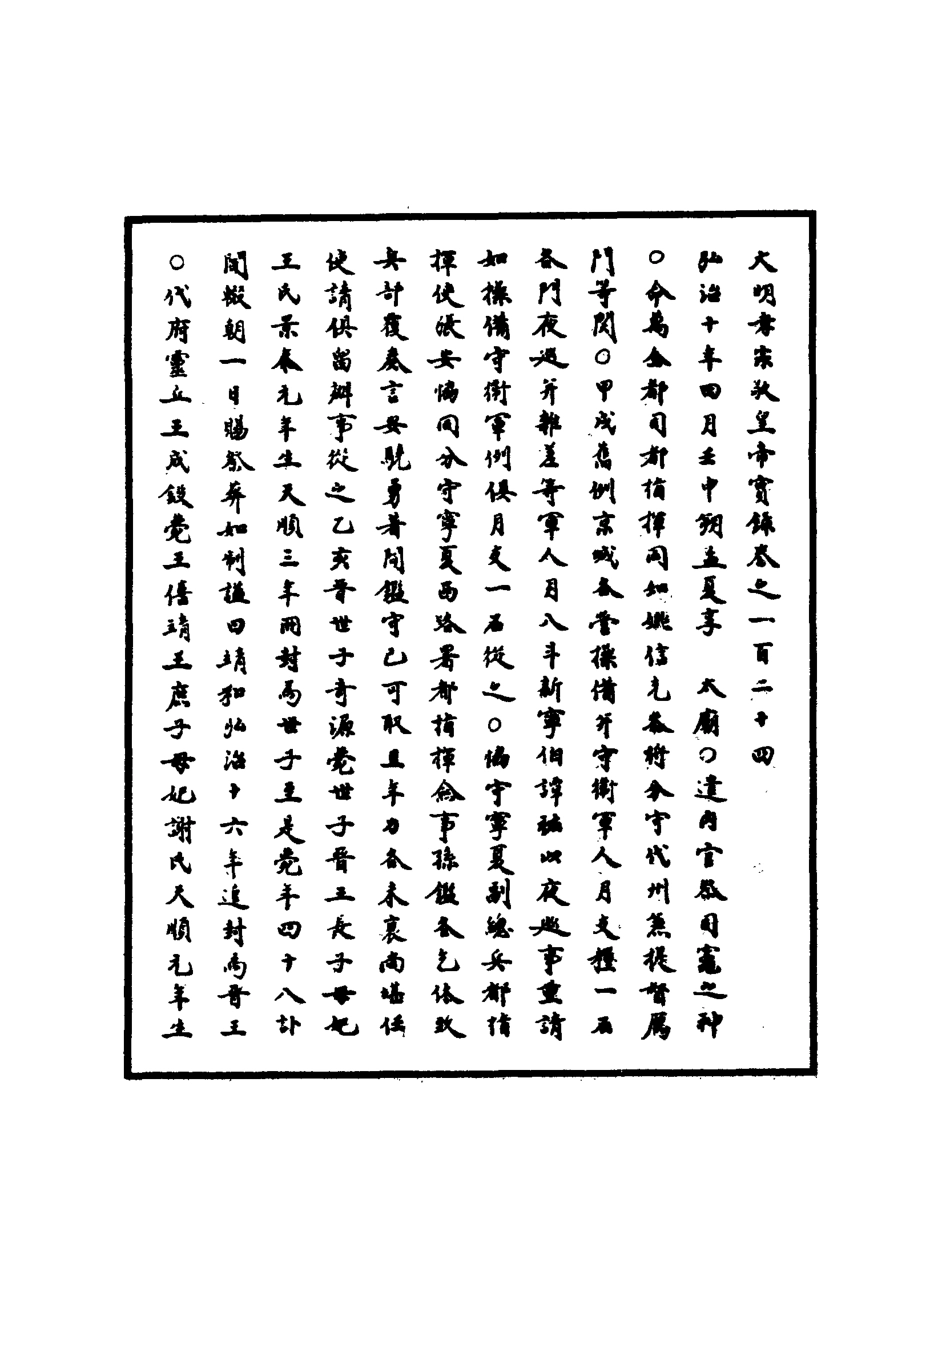 大明孝宗敬皇帝實錄卷之一百二十四
弘治十年四月壬申朔孟夏享　太廟○遣內官祭司竈之神
○命萬全都司都指揮同知姚信充叅將分守代州兼提督鴈
門等關○甲戌舊例京城各營操備并守衛軍人月支糧一石
各門夜巡并雜差等軍人月八斗新寧伯譚祐以夜巡事重請
如操備守衛軍例俱月支一石從之○協守寧夏副總兵都指
揮使張安協同分守寧夏西路署都指揮僉事孫鑑各乞休致
兵部覆奏言安驍勇著聞鑑守己可取且年力各未衰尚堪任
使請俱留辦事從之乙亥晉世子奇源薨世子晉王長子母妃
王氏景泰元年生天順三年冊封為世子至是薨年四十八訃
聞輟朝一日賜祭葬如制謚曰靖和弘治十六年追封為晉王
○代府靈丘王成鈠薨王僖靖王庶子母妃謝氏天順元年生